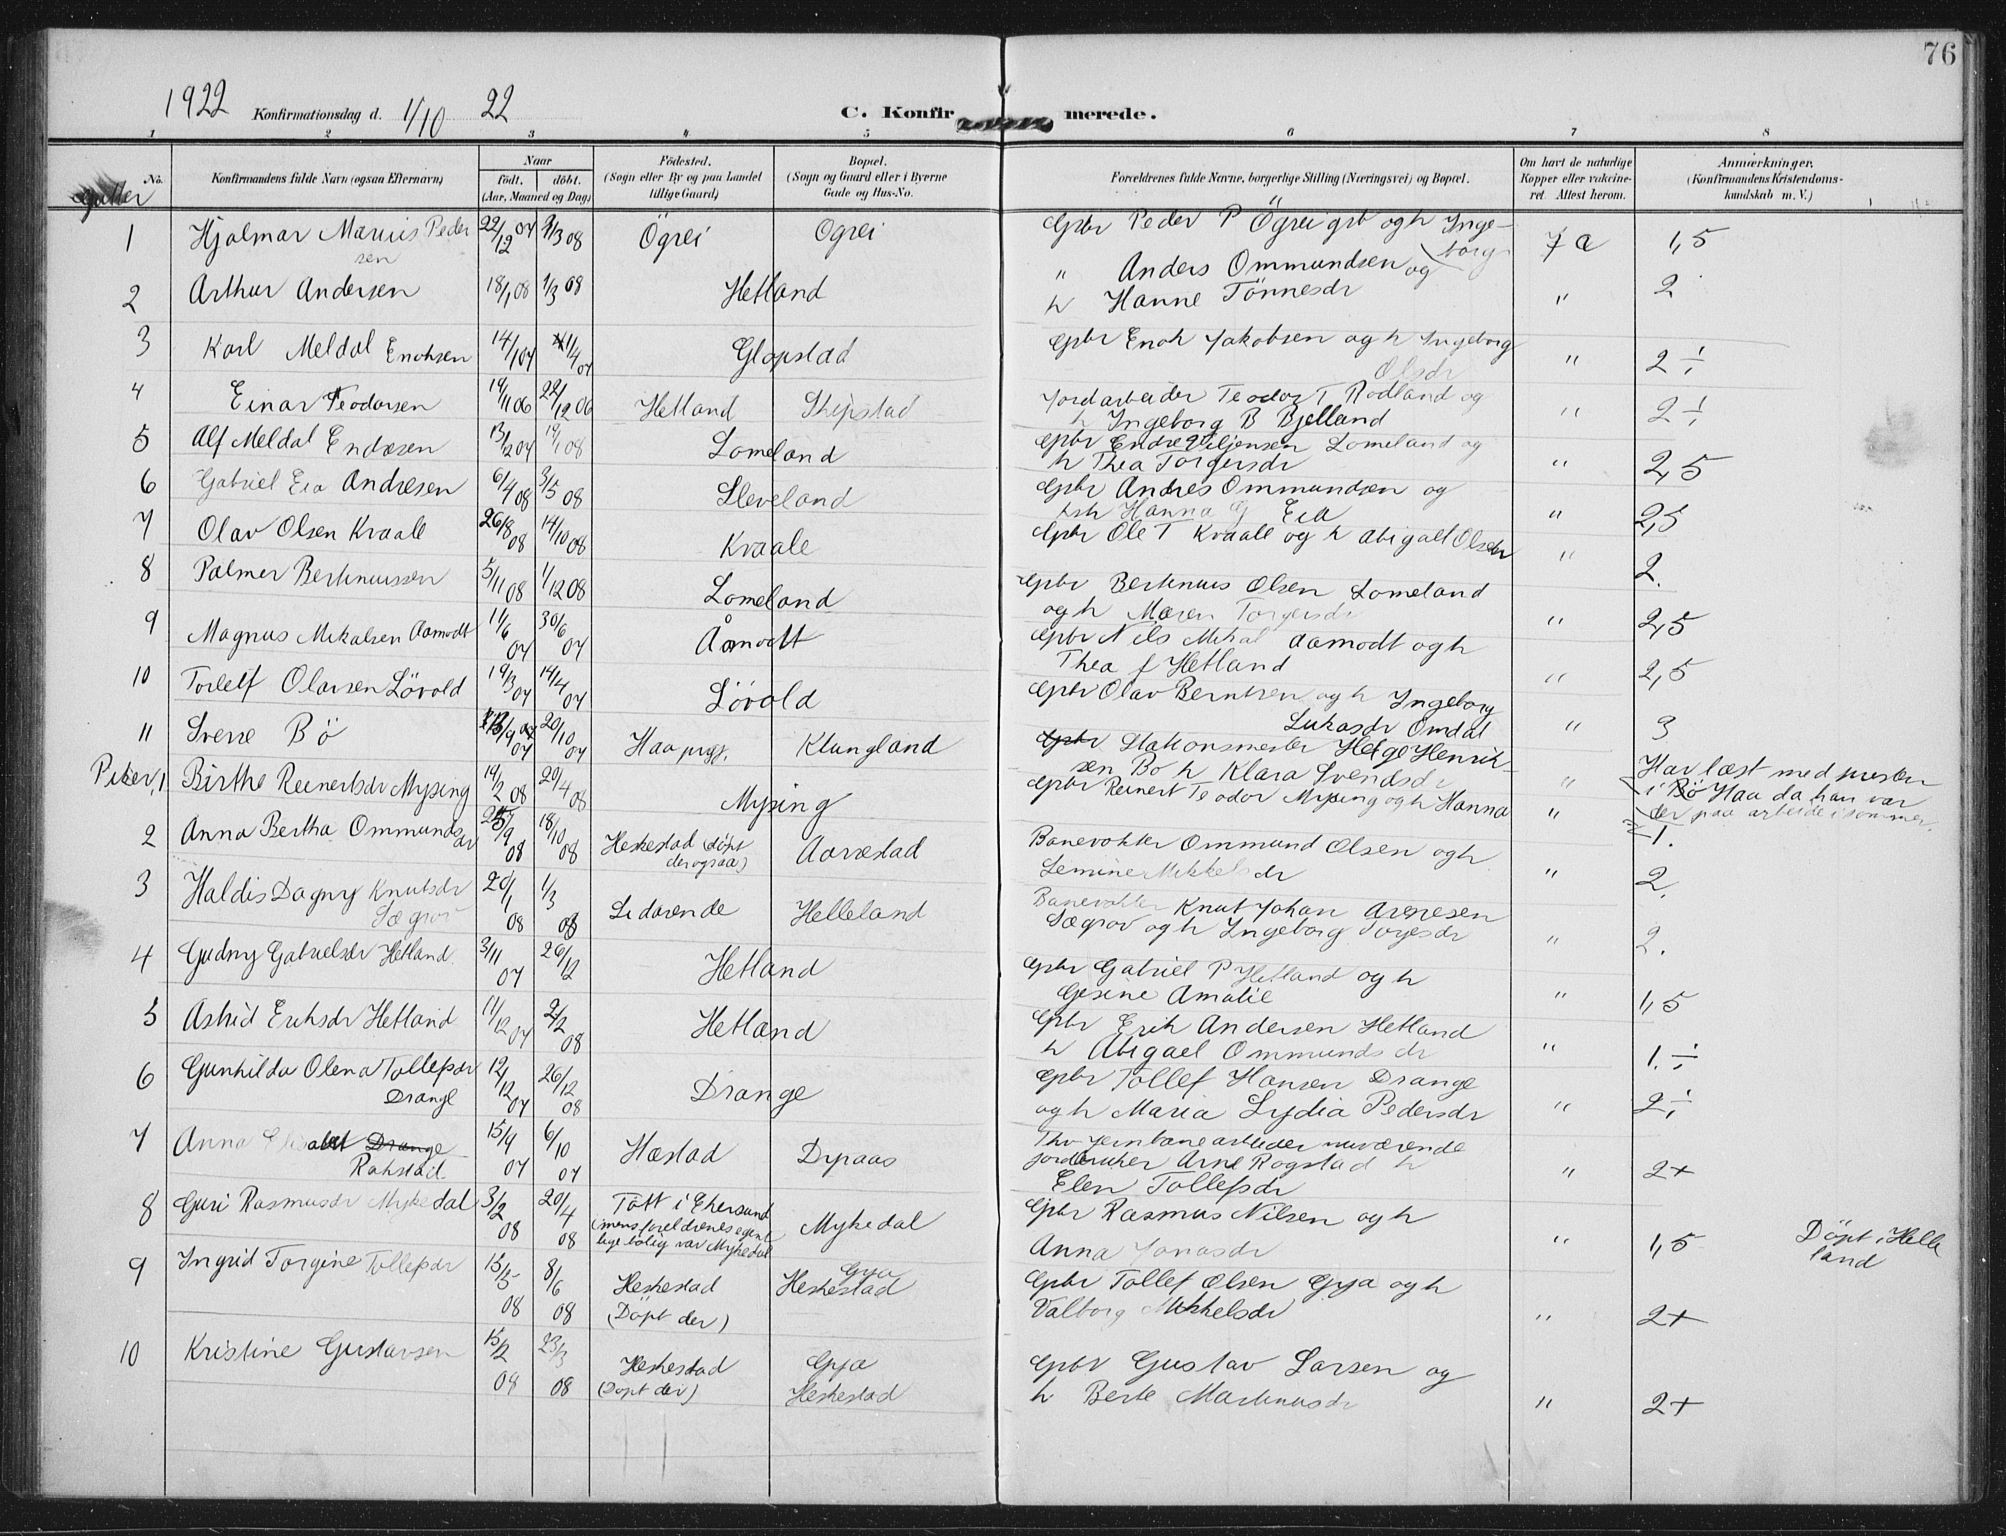 76
1922 Konfirmationsdag d. 1/10 22 C. Konfirmerede.
1 2 3 4 5 6 7 8
No. Konfirmandens fulde Navn (ogsaa Efternavn) Naar født. døbt. (Aar, Maaned og Dag) Fødested. (Sogn eller By og paa Landet tillige Gaard) Bopæl. (Sogn og Gaard eller i Byerne Gade og Hus-No. Forældrenes fulde Navne, borgerlige Stilling (Næringsvei) og Bopæl. Om havt de naturlige Kopper eller vaccineret. Attest herom. Anmærkninger. (Konfirmandens Kristendomskundskab m. V.)
Gutter
1 Hjalmar Marius Pedersen 22/12 07 1/3 08 Ögrei Ogrei Gbr Peder P Ögrei gst og h Ingeborg 1,5
2 Arthur Andersen 18/1 08 1/3 08 Hetland " Anders Ommundsen og
h Hanne Tönnesdr " 2
3 Karl Meldal Enoksen 14/1 07 1/4 07 Glopstad Gbr Enok Jakobsen og h Ingeborg
Olsdr " 2 ÷
4 Einar Teodorsen 19/11 06 22/12 06 Hetland Skipstad Jordarbeider Teodor T Rodland og
h Ingeborg B Bjelland " 2 ÷
5 Alf Meldal Endresen Lomeland Gbr Endre Lomeland og
h Thea Torgersdr " 2,5
6 Gabriel Eia Andresen 6/4 08 3/5 08 Sleveland Gbr Andres Ommundsen og
Hanna G Eia " 2,5
7 Olav Olsen Kraale 26/8 08 14/10 08 Kraale Gbr Ole T Kraale og h Abigael Olsdr " 2.
8 Palmer Bertinussen 5/11 08 1/12 08 Lomeland Gbr Bertinus Olsen Lomeland
og h Maren Torgersdr " 2,5
9 Magnus Mikalsen Aamodt 11/6 07 30/6 07 Åmodt Gbr Nils Mikal Aamodt og h
Thea J Hetland " 2,5
10 Torleif Olavsen Lövold 19/3 07 14/4 07 Lövold Gbr Olav Berntsen og h Ingeborg
Lukasdr Omdal " 3
11 Sverre Bö 20/10 07 Haa prgj. Klungland Stationsmester Helge Henriksen
Bö h Klara Svendsdr " Har læst med presten
i Haa da han var
der paa arbeide i sommer.
Piker, 1 Birthe Reinertsdr Mysing 19/2 08 20/4 08 Mysing Gbr Reinert Teodor Mysing og h Hanna " 1.
2 Anna Bertha Ommundsdr 18/10 08 Heskestad (döpt
der ogsaa) Aarrestad Banevokter Ommund Olsen og h
Semine Mikkelsdr " 2.
3 Haldis Dagny Knutsdr
Sægrov 20/1 08 1/3 08 Helleland Banevokter Knut Johan Arnesen
Sægrov og h Ingeborg " 2.
4 Gudny Gabrielsdr Hetland. 3/11 07 26/12 Hetland Gbr Gabriel P Hetland og h
Gesine Amalie " 1,5
5 Astrid Eriksdr Hetland 11/12 07 2/2 08 Hetland Gbr Erik Andersen Hetland
h Abigael Ommundsdr " 1. ÷
6 Gunhilda Olena Tollefsdr
Drange 12/12 07 26/12 08 Drange Gbr Tollef Hansen Drange
og h Maria Lydia Pedersdr " 2 ÷
7 Anna Drange
Rakstad 6/10 07 Hæstad Dypaas Jernbanearbeider nuværende
jordbruker Arne Rogstad h
Elen Tollefsdr " 2+
8 Guri Rasmusdr Mykedal 3/2 08 20/4 08 Tott i Ekersund
(mens foreldrenes egent
lige bolig var Mykedal Mykedal Gbr Rasmus Nilsen og h
Anna Jonasdr " 1,5 Döpt i Helle
land
9 Ingrid Torgine Tollefsdr 15/5 08 8/6 08 Heskestad
(Döpt der) Gya
Heskestad Gbr Tollef Olsen Gya og h
Valborg Mikkelsdr " 2+
10 Kristine Gustavsen 15/2 08 23/3 08 Heskestad
(Döpt der) Gya
Heskestad Gbr Gustav Larsen og
h Berte Martinusdr " 2+